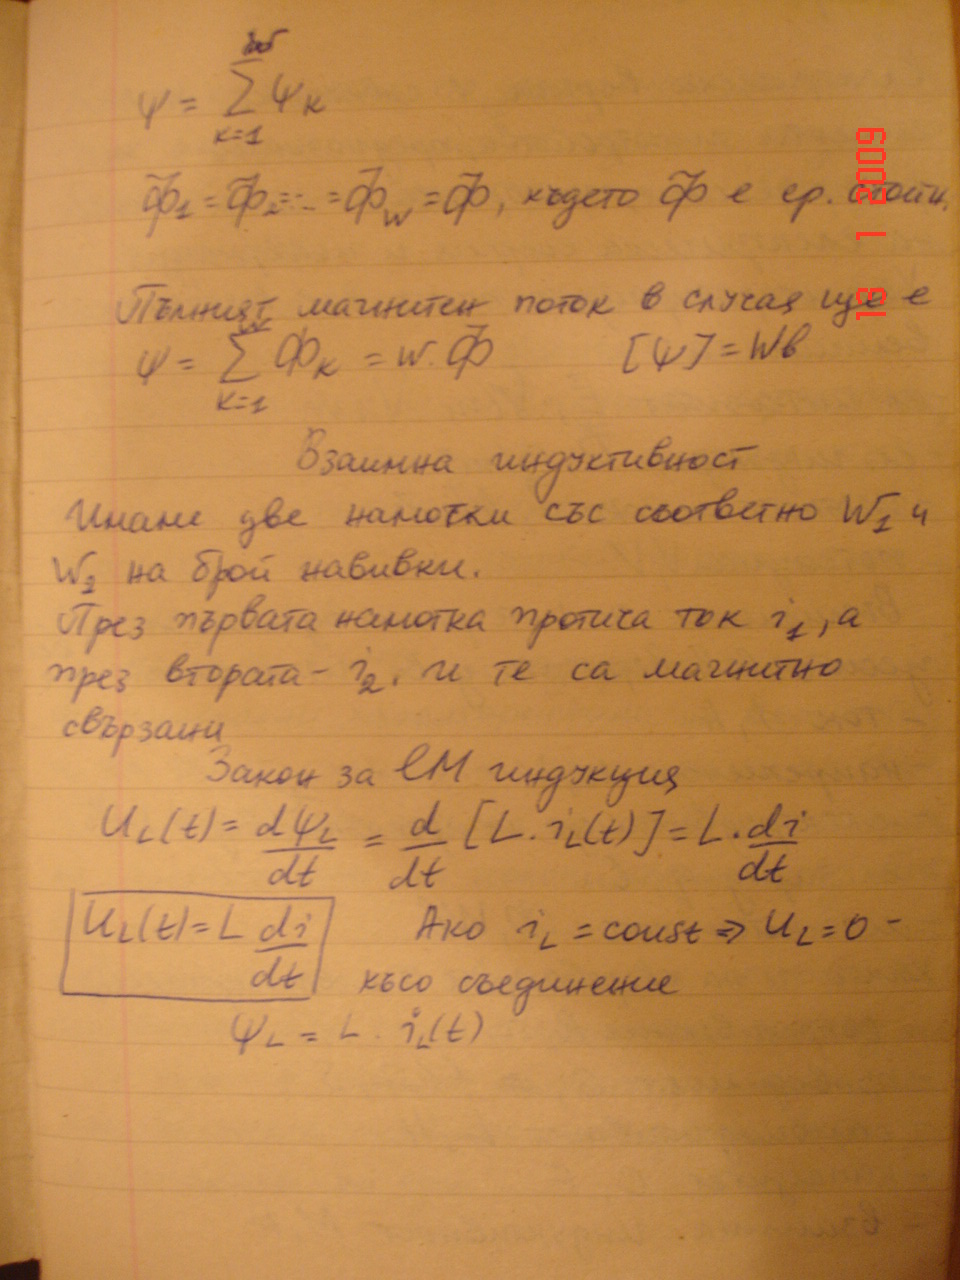 ψ = Σ ψк
к=1
Ф̃1 = Ф̃2 = ... = Ф̃w = Ф̃, където Ф̃ е ср. стойн.
Пълният магнитен поток в случая ще е
w
ψ = Σ Фк = w. Ф̃ [ψ] = Wb
к=1
Взаимна индуктивност
Имаме две намотки със съответно W1 и
W2 на брой навивки.
През първата намотка протича ток i1, а
през втората - i2, и те са магнитно
свързани
Закон за ЕМ индукция
UL(t) = dψL/dt = d/dt [L. iL(t)] = L. di/dt
UL(t) = L di/dt Ако iL = const => UL = 0 -
късо съединение
ψL = L. iL(t)
13 1 2009